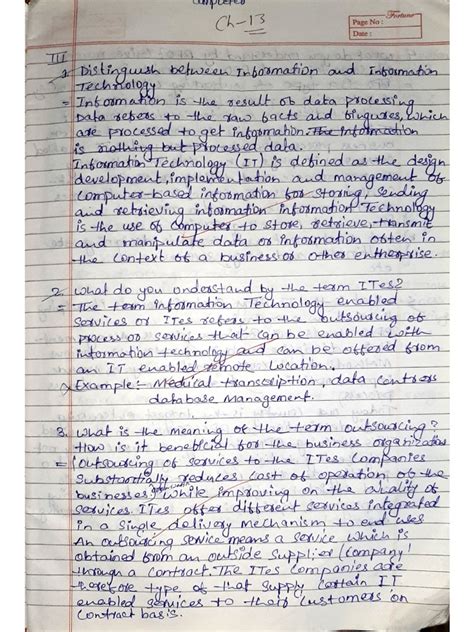 completed
Ch-13
Fortune
Page No :
Date :
III
1. Distinguish between Information and Information
Technology
= Information is the result of data processing
Data refers to the raw facts and fingures, which
are processed to get information. The Information
is nothing but processed data.
Information Technology (IT) is defined as the design
development, implementation and management of
computer-based information for storing, sending
and retrieving information Information Technology
is the use of computer to store, retrieve, transmit
and manipulate data or information often in
the context of a business or other enterprise.
2. What do you understand by the term ITes?
= The term information Technology enabled
services or ITes refers to the outsourcing of
process or services that can be enabled with
information technology and can be offered from
an IT enabled remote location.
Example:- Medical transcription, data
database Management.
3. What is the meaning of the term outsourcing?
How is it beneficial for the business organization
= Outsourcing of services to the ITes Companies
Substantially reduces cost of operation of the
businesses while improving on the quality of
services. ITes offer different services integrated
in a single delivery Mechanism to end uses
An outsourcing service means a service which is
obtained from an outside supplier/company
through a contract. The ITes Companies are
therefore type of that supply certain IT
enabled services to their customers on
contract basis.